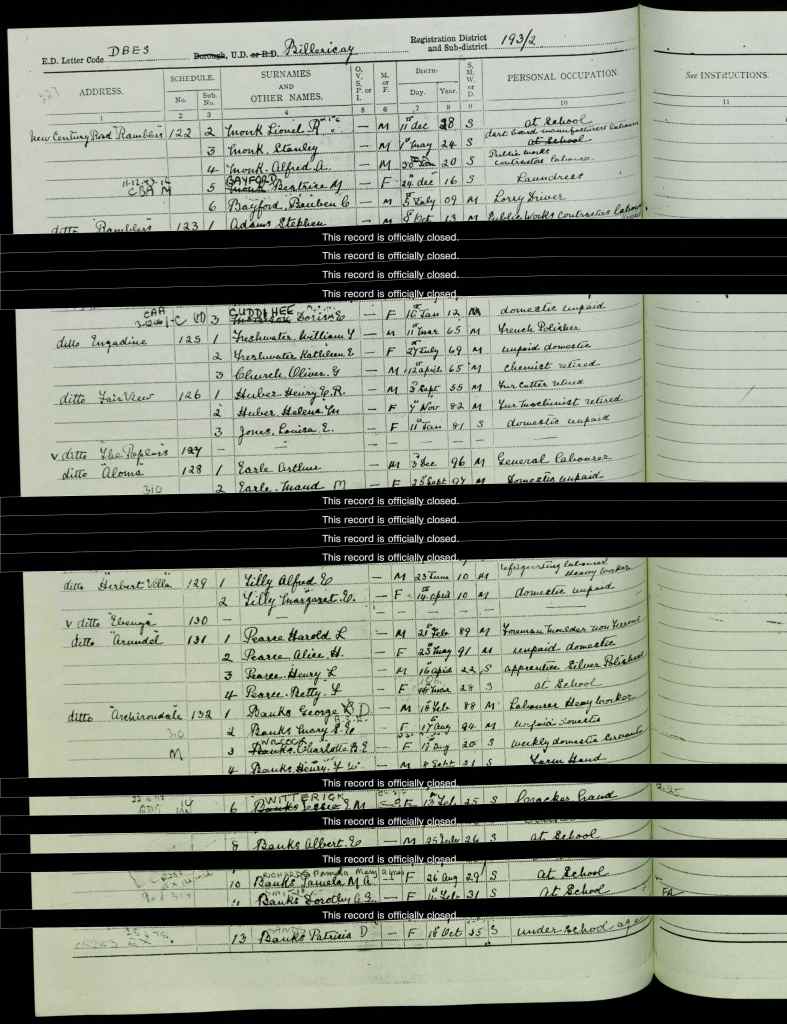 E.D. Letter Code DBES Borough, U.D. or R.D. Billericay Registration District and Sub-district 193/2
ADDRESS. SCHEDULE. No. Sub. No. SURNAMES AND OTHER NAMES. O, V, S, P. or I. M. or F. BIRTH— Day. Year. S, M, W, or D. PERSONAL OCCUPATION. See INSTRUCTIONS.
1 2 3 4 5 6 7 8 9 10 11
New Century Road "Ramblers" 122 2 Monk Lionel R — M 11 Dec 28 S at School
3 Monk Stanley — M 1 May 24 S dart board manufacturers labourer at School
4 Monk Alfred A. — M 20 20 S Public works contractor labourer
CBA M 5 BAYFORD Monk Beatrice M — F 24 Dec 16 S Laundress
6 Bayford, Reuben C — M 5 July 09 M Lorry Driver
ditto "Ramblers" 123 1 Adams Stephen — M 8 Oct 13 M Public Works Contractor labourer
This record is officially closed.
This record is officially closed.
This record is officially closed.
This record is officially closed.
CAA 3 CUDDIHEE Doris E — F 16 Jan 12 M domestic unpaid
ditto Engadine 125 1 Freshwater, William Y — M 11 Mar 65 M French Polisher
2 Freshwater Kathleen E — F 27 July 69 M unpaid domestic
3 Church Oliver. G — M 12 April 65 M Chemist retired
ditto Fair View 126 1 Huber Henry G. R. — M 3 Sept 55 M Fur Cutter retired
2 Huber Helena M — F 7 Nov 82 M Fur Machinist retired
3 Jones, Louisa E. — F 11 Jan 81 S domestic unpaid
v ditto The Poplars 127 — — — — — — —
ditto "Aloma" 128 1 Earle Arthur — M 3 Dec 96 M General Labourer
310 2 Earle. Maud M — F 25 Sept 97 M Domestic unpaid
This record is officially closed.
This record is officially closed.
This record is officially closed.
This record is officially closed.
ditto "Herbert Villa" 129 1 Lilly Alfred E — M 23 June 10 M labourer Heavy Worker
2 Lilly Margaret. E. — F 14 April 10 M domestic unpaid
v ditto 130 — — — — — — —
ditto "Arundel" 131 1 Pearce Harold L — M 21 Feb 89 M Foreman Moulder non Ferrous
2 Pearce. Alice H. — F 23 May 91 M unpaid domestic
3 Pearce. Henry L — M 16 April 22 S apprentice Silver Polisher
4 Pearce. Betty. L — F Mar 28 S at School
ditto 132 1 Banks George — M 16 Feb 88 M Labourer Heavy Worker
310 2 Banks Mary — F 17 Aug 94 M unpaid domestic
M 3 WILCOCK Banks. Charlotte B. E — F 17 Aug 20 S weekly domestic Servant
4 Banks Henry. F W. — M 8 Sept 21 S Farm Hand
This record is officially closed.
6 WITTERICK Banks Jessie E M F 13 Feb 25 S Cracker Hand
This record is officially closed.
8 Banks Albert. E — M 25 26 S at School
This record is officially closed.
10 Banks Pamela M A — F 26 Aug 29 S at School
11 Banks Dorothy — F 11 Feb 31 S at School
This record is officially closed.
13 Banks Patricia D — F 18 Oct 35 S under school age